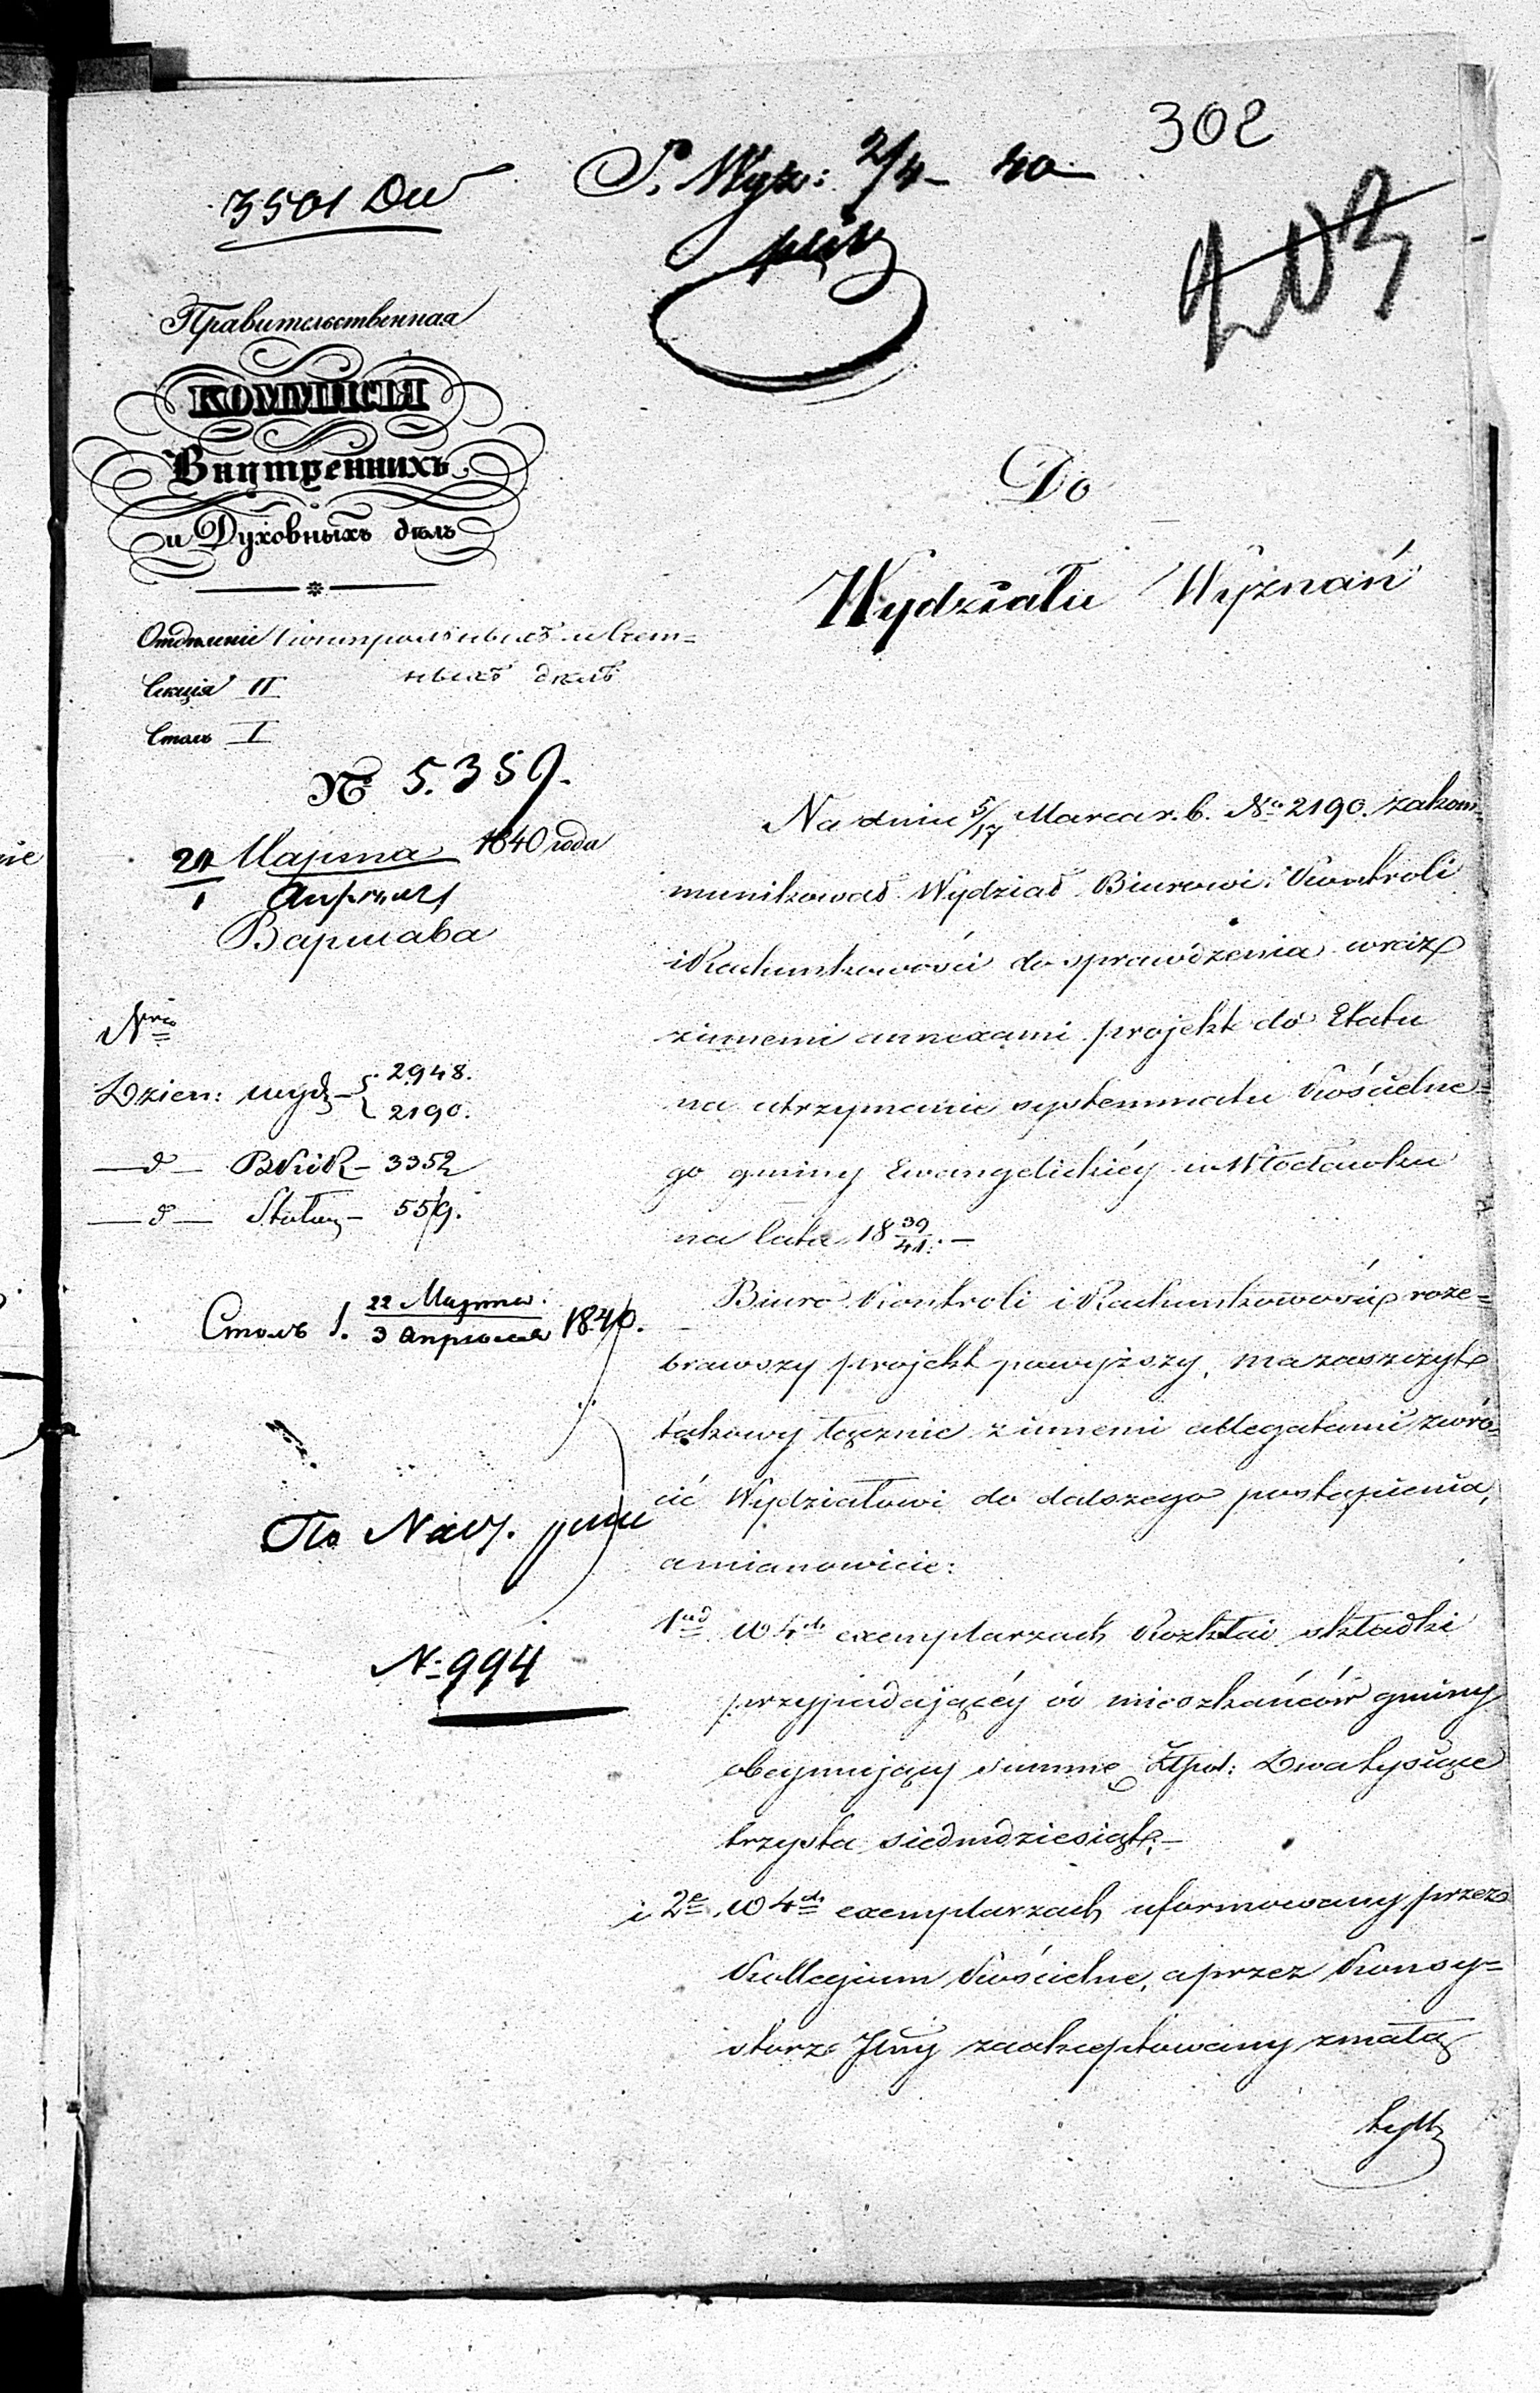 302
3501 DW
P. Wyz: 2/4 - 40
203
Правительственная
КОММИСІЯ
Внутреннихъ
и Духовныхъ дѣлъ
Отдѣленіе Контрольныхъ и Счет=
ныхъ дѣлъ
Секція II
Столъ I
№ 5.359.
Марта 1840 года
1 Апрѣля
Варшава
Nra
Dzien: wydz - { 2948.
2190.
—d— BKiR - 3352
—d— 559.
Столъ 1. 22 Марта / 3 Апрѣля 1840.
По
N: 994
Do
Wydziału Wyznań
Na dniu 5/17 Marca r. b. No 2190. zakom=
munikował Wydział Biurowi Kontroli
i Rachunkowości do sprawdzenia wraz
z innemi annexami projekt do Etatu
na utrzymanie systemmatu Kościelne=
go gminy Ewangelickiéy w Włocławku
na lata 18 39/41. —
Biuro Kontroli i Rachunkowości roze=
brawszy projekt powyższy, ma zaszczyt
takowy łącznie z innemi allegatami zwró=
cić Wydziałowi do dalszego postąpienia,
a mianowicie:
1od w 4ch exemplarzach Rozkład składki
przypadającéy od mieszkańców gminy
obeymujący summę Złpol: Dwa tysiące
trzysta siedmdziesiąt, —
i 2e w 4ch exemplarzach uformowany przez
Kollegium Kościelne, a przez Konsy=
storz Jlny zaakceptowany z małą
tylk